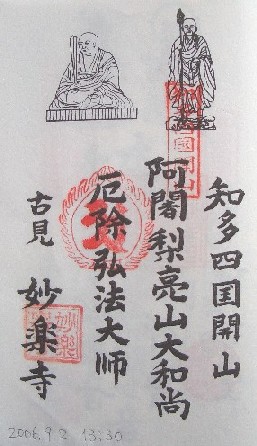 知多四国開山
阿闍梨亮山大和尚
厄除弘法大师
古見 妙楽寺
2006.9.2 13:30